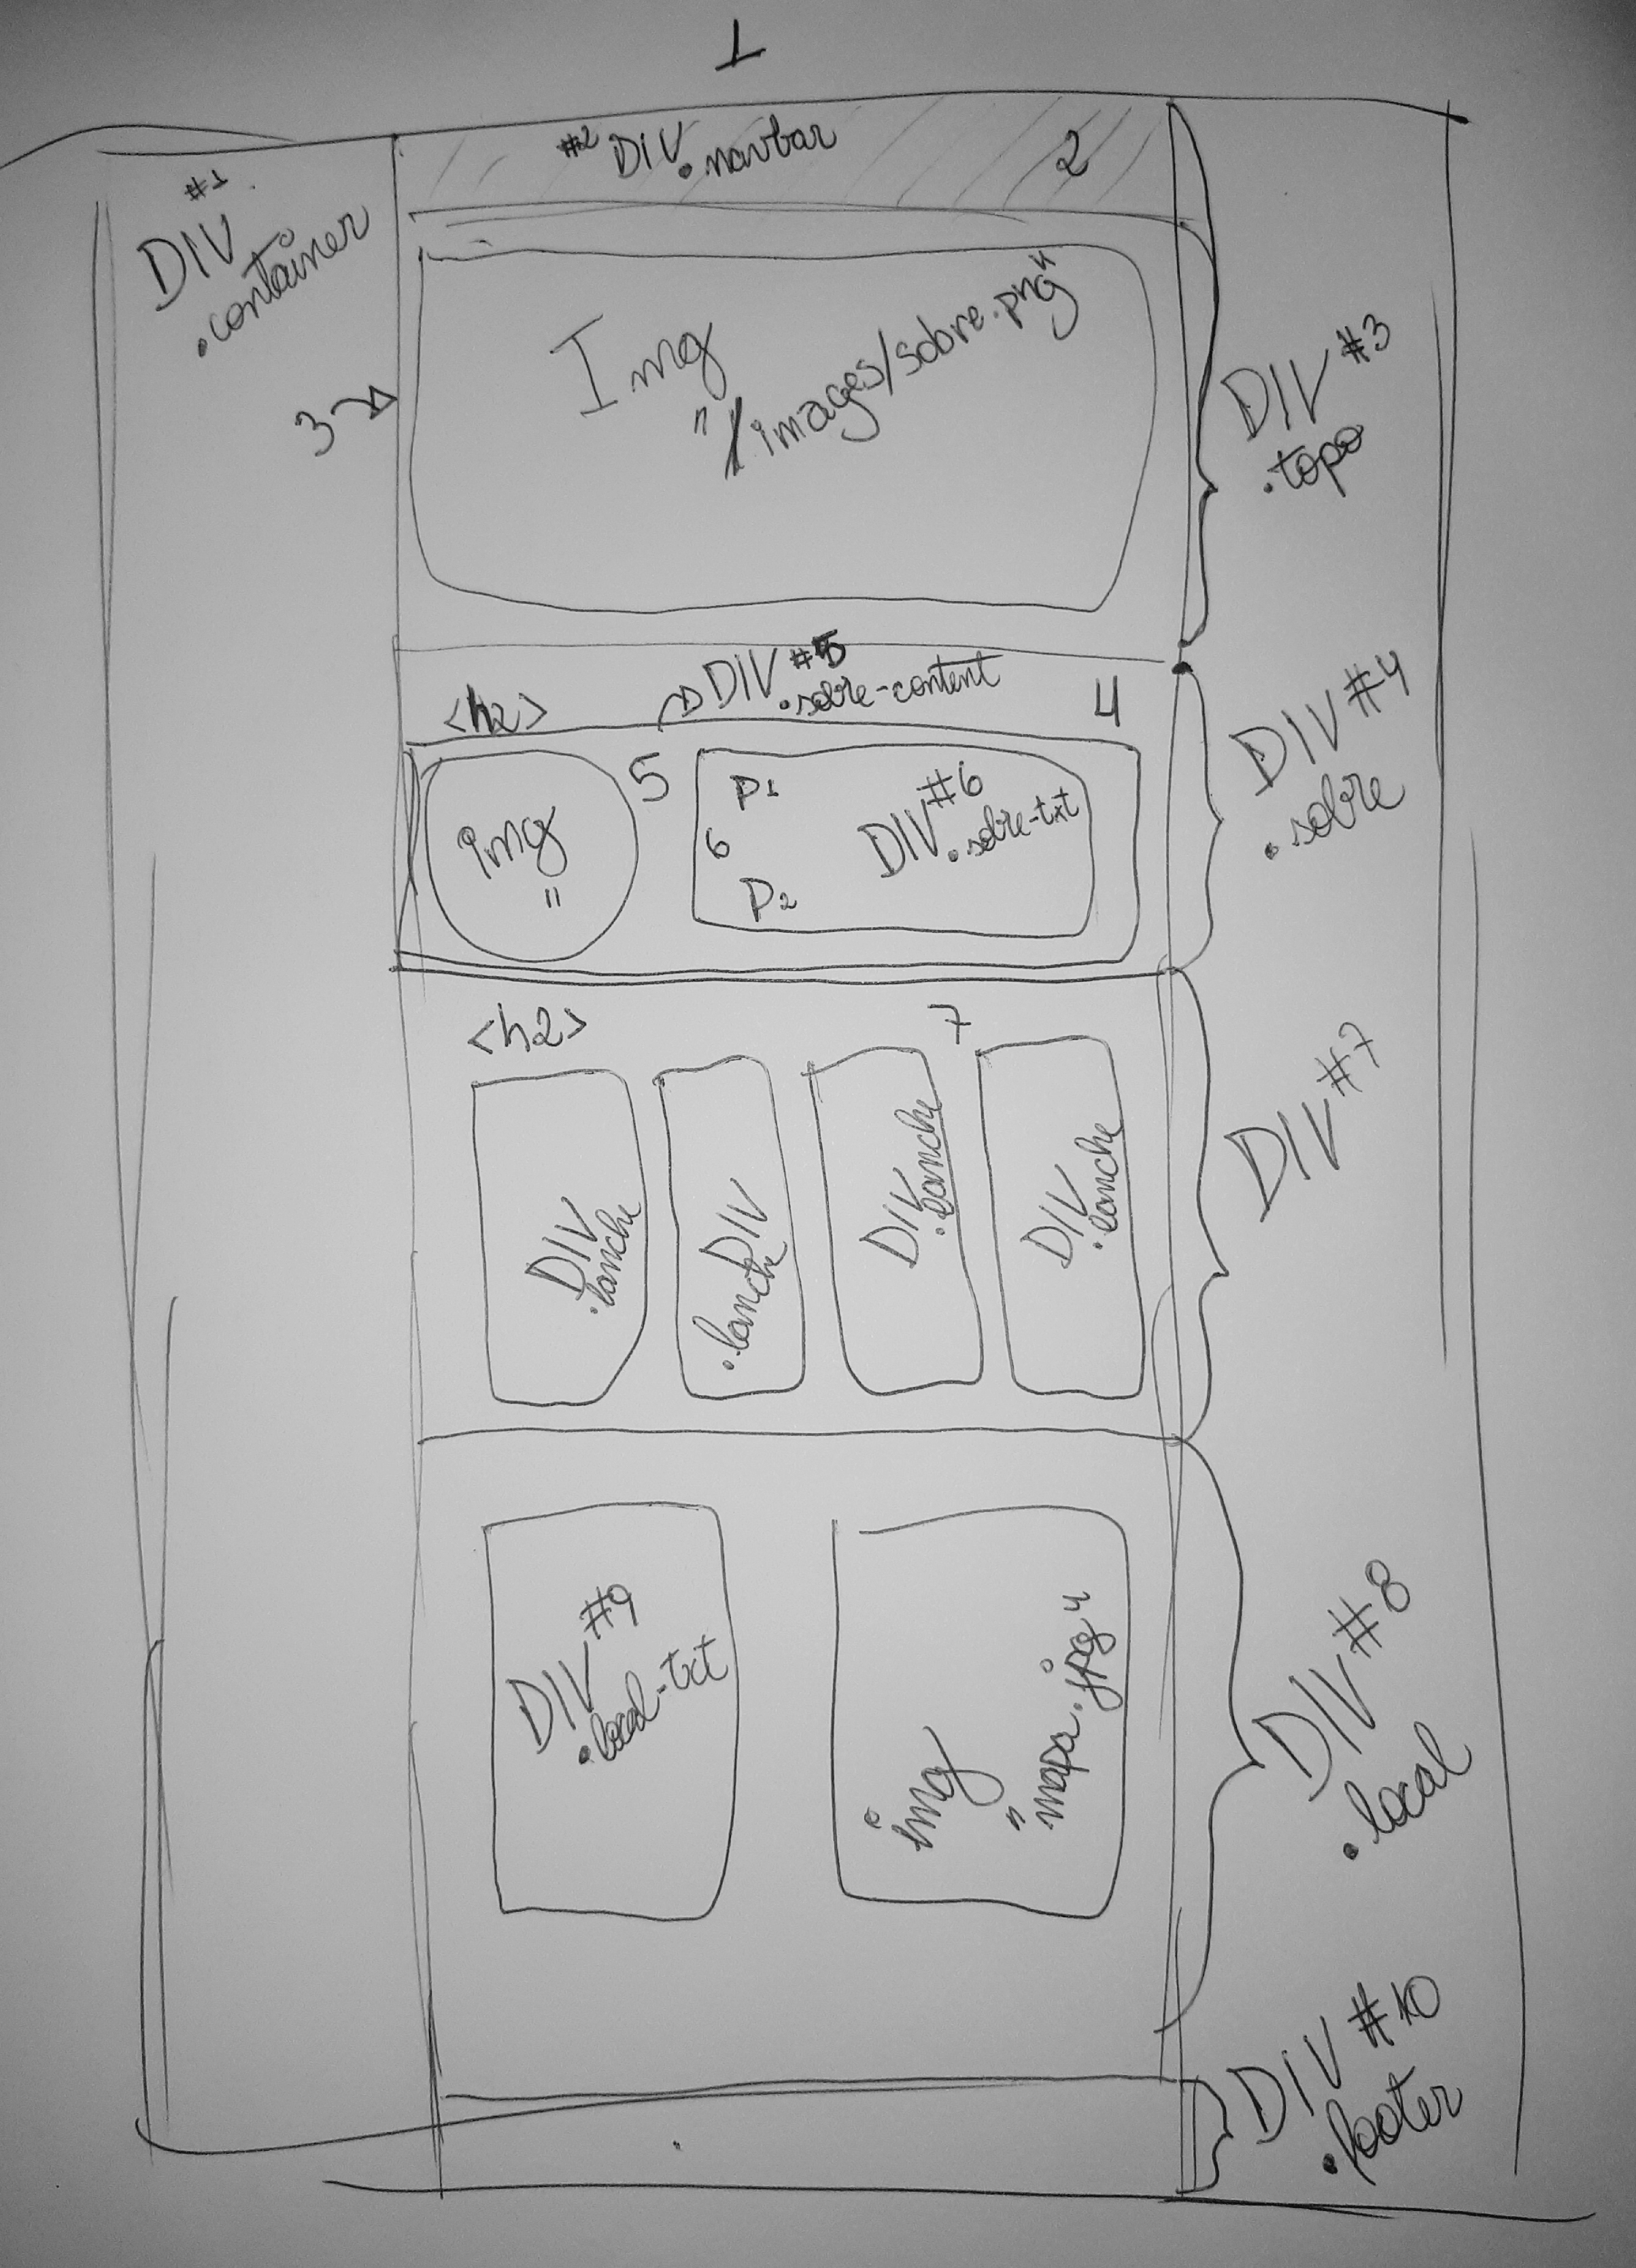 1
#2 DIV .navbar 2
#1
DIV
.container
Img
"/images/sobre.png"
3
DIV #3
.topo
<h2>
DIV #5
.sobre-content
4
DIV #4
.sobre
img
"
5
P1
6
P2
DIV #6
.sobre-txt
<h2>
7
DIV
.lanche
DIV
.lanche
DIV
.lanche
DIV
.lanche
DIV #7
DIV #9
.local-txt
img
"mapa.jpg"
DIV #8
.local
DIV #10
.footer